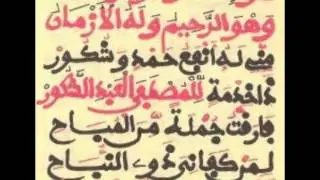 وهو الرحيم وله الأزمان
مني له أنفع حمد وشكور
ذا خدمة للمصطفى العبد الشكور
فارقت جملة من القباح
لمن كفاني ذوي النباح